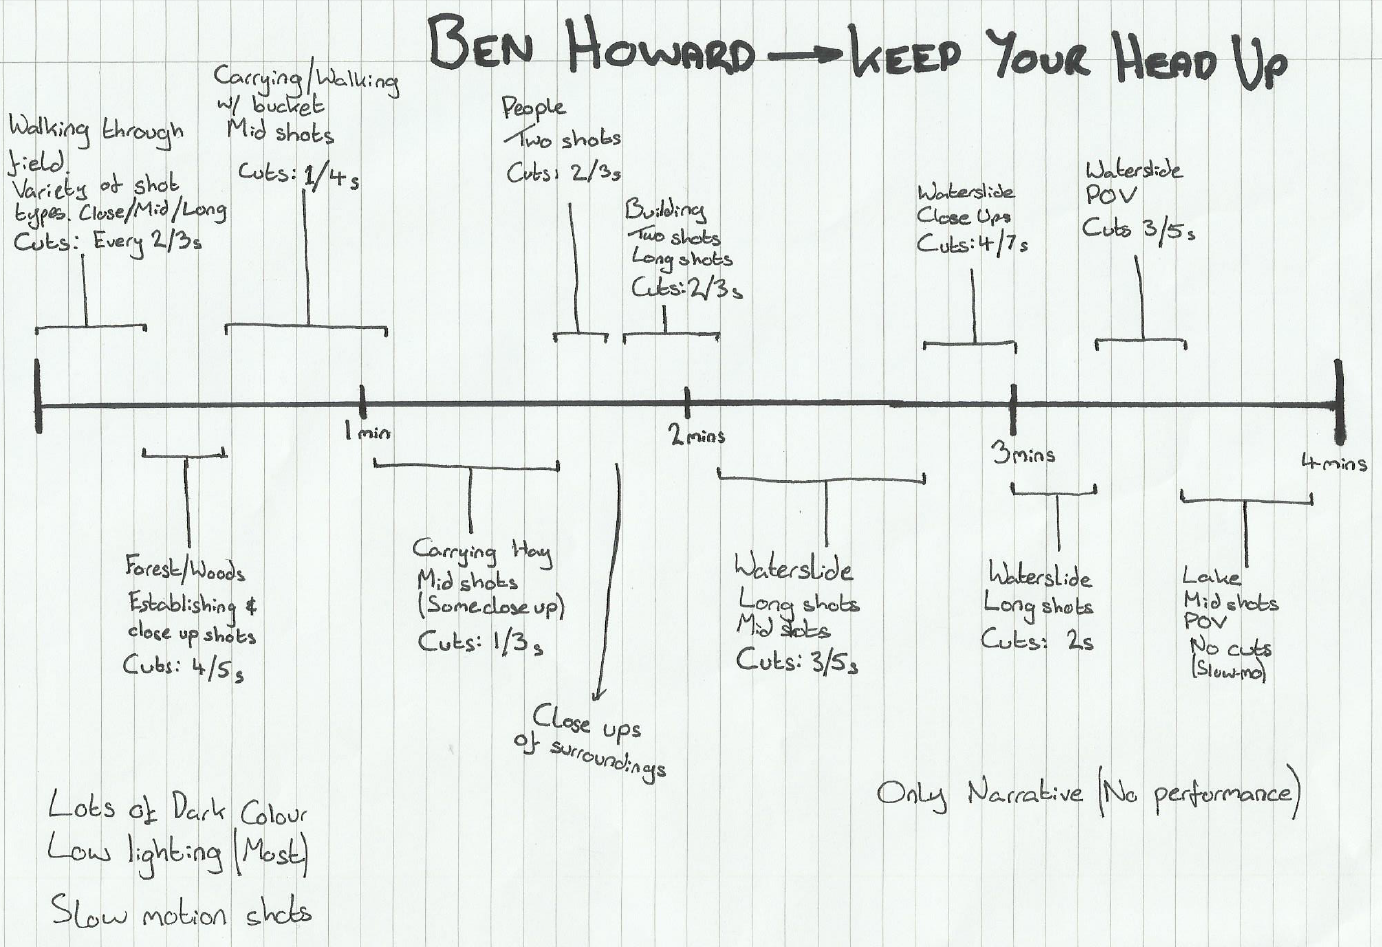 BEN HOWARD → KEEP YOUR HEAD UP
Walking through
field.
Variety of shot
types. Close/Mid/Long
Cuts: Every 2/3s
Carrying/Walking
w/ bucket
Mid shots
Cuts: 1/4s
People
Two shots
Cuts: 2/3s
Building
Two shots
Long shots
Cuts: 2/3s
Waterslide
Close Ups
Cuts: 4/7s
Waterslide
POV
Cuts 3/5s
1 min
2 mins
3 mins
4 mins
Forest/Woods
Establishing &
close up shots
Cuts: 4/5s
Carrying Hay
Mid shots
(Some close up)
Cuts: 1/3s
Close ups
of surroundings
Waterslide
Long shots
Mid shots
Cuts: 3/5s
Waterslide
Long shots
Cuts: 2s
Lake
Mid shots
POV
No cuts
(Slow-mo)
Lots of Dark Colour
Low lighting (Most)
Slow motion shots
Only Narrative (No performance)